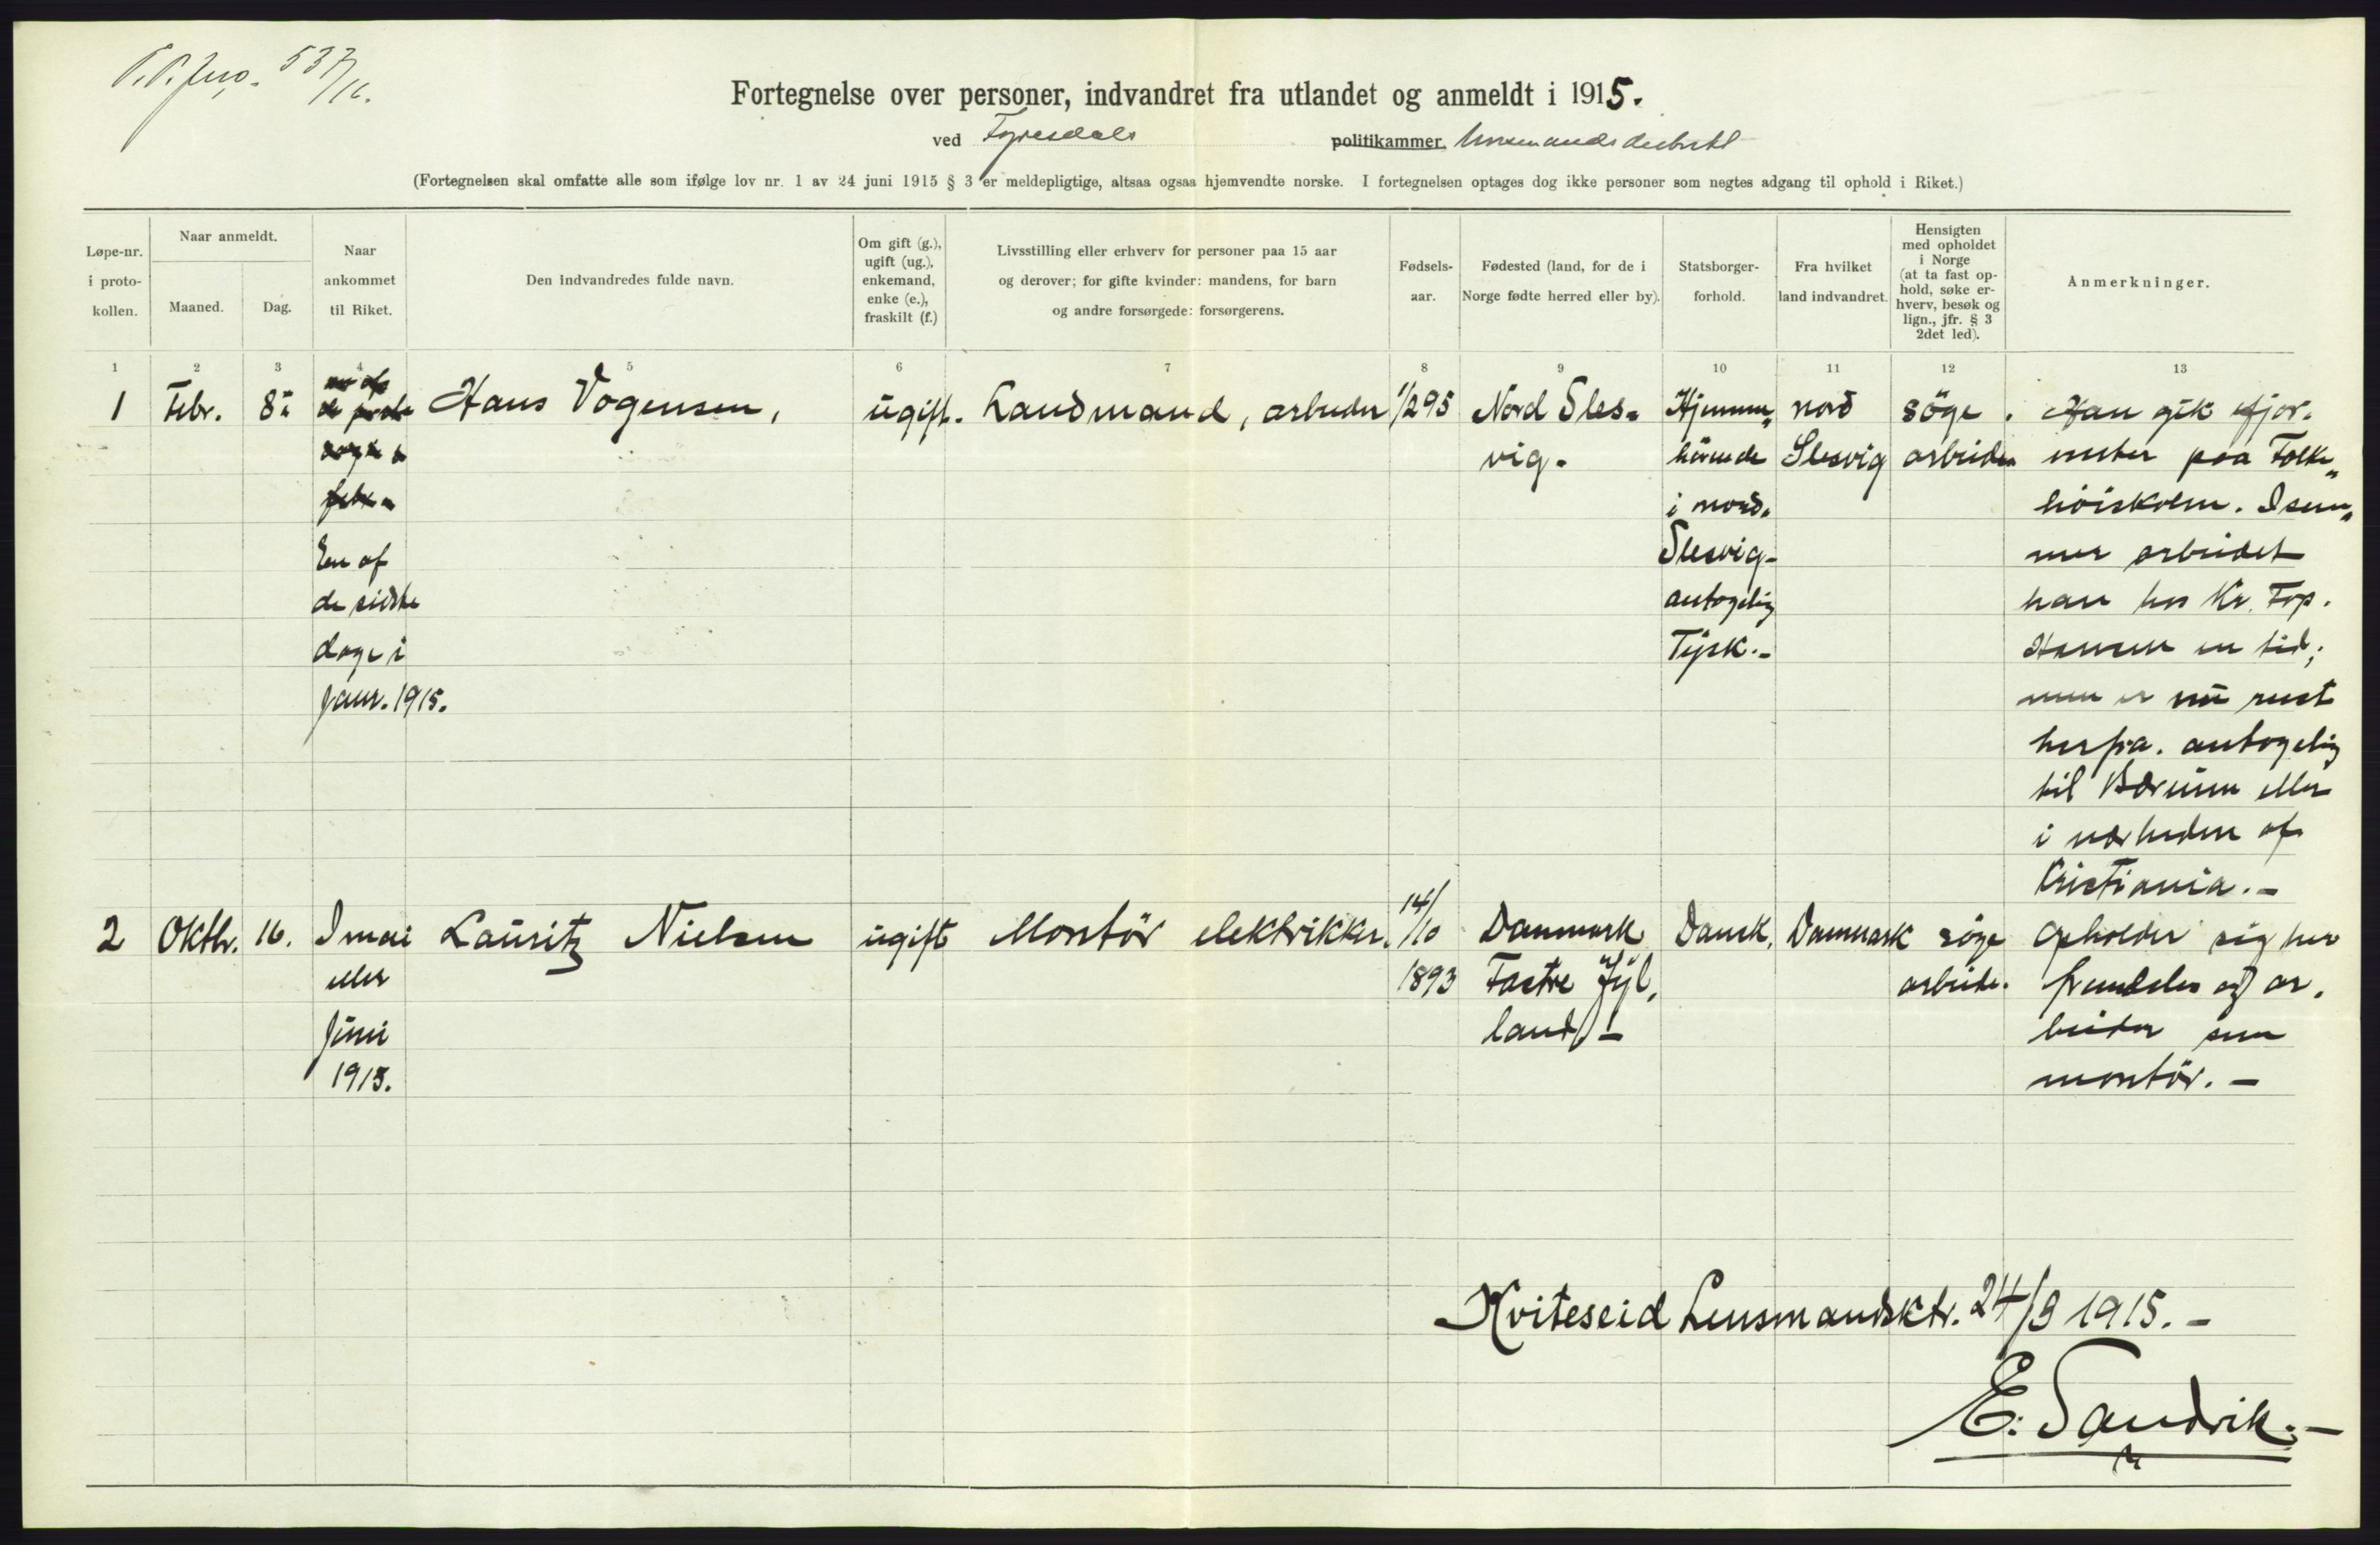 537/16.
Fortegnelse over personer, indvandret fra utlandet og anmeldt i 1915.
ved Fyresdals politikammer. lensmandsdistrikt
(Fortegnelsen skal omfatte alle som ifølge lov nr. 1 av 24 juni 1915 § 3 er meldepligtige, altsaa ogsaa hjemvendte norske. I fortegnelsen optages dog ikke personer som negtes adgang til ophold i Riket.)
Løpe-nr.
i proto-
kollen.
Naar anmeldt.
Maaned.
Dag.
Naar
ankommet
til Riket.
Den indvandredes fulde navn.
Om gift (g.),
ugift (ug.),
enkemand,
enke (e.),
fraskilt (f.)
Livsstilling eller erhverv for personer paa 15 aar
og derover; for gifte kvinder: mandens, for barn
og andre forsørgede: forsørgerens.
Fødsels-
aar.
Fødested (land, for de i
Norge fødte herred eller by).
Statsborger-
forhold.
Fra hvilket
land indvandret.
Hensigten
med opholdet
i Norge
(at ta fast op-
hold, søke er-
hverv, besøk og
lign., jfr. § 3
2det led).
Anmerkninger.
1 2 3 4 5 6 7 8 9 10 11 12 13
1
Febr.
8.
En af
de sidste
dage i
Janr. 1915.
Hans Vogensen,
ugift.
Landmand, arbeider
1/295
Nord Sles-
vig.
Hjemme-
hörende
i nord.
Slesvig-
antagelig
Tysk.-
nord
Slesvig
söge
arbeide
Han gik ifjor.
vinter paa Folke-
höiskolen. I som-
mer arbeidet
han hos Kr. Fop.
Hansen en tid;
men er nu reist
herfra. antagelig
til Bærum eller
i nærheden af
Kristiania.-
2
Oktbr.
16.
I mai
eller
Juni
1915.
Lauritz Nielsen
ugift
Montör elektrikker.
14/10
1893
Danmark
Fastre Jyl,
land.-
Dansk.
Danmark
söge
arbeide.
Opholder sig her
fremdeles og ar.
beider som
montör.-
Kviteseid Lensmandsktr. 24/9 1915.-
E. Sandvik.-